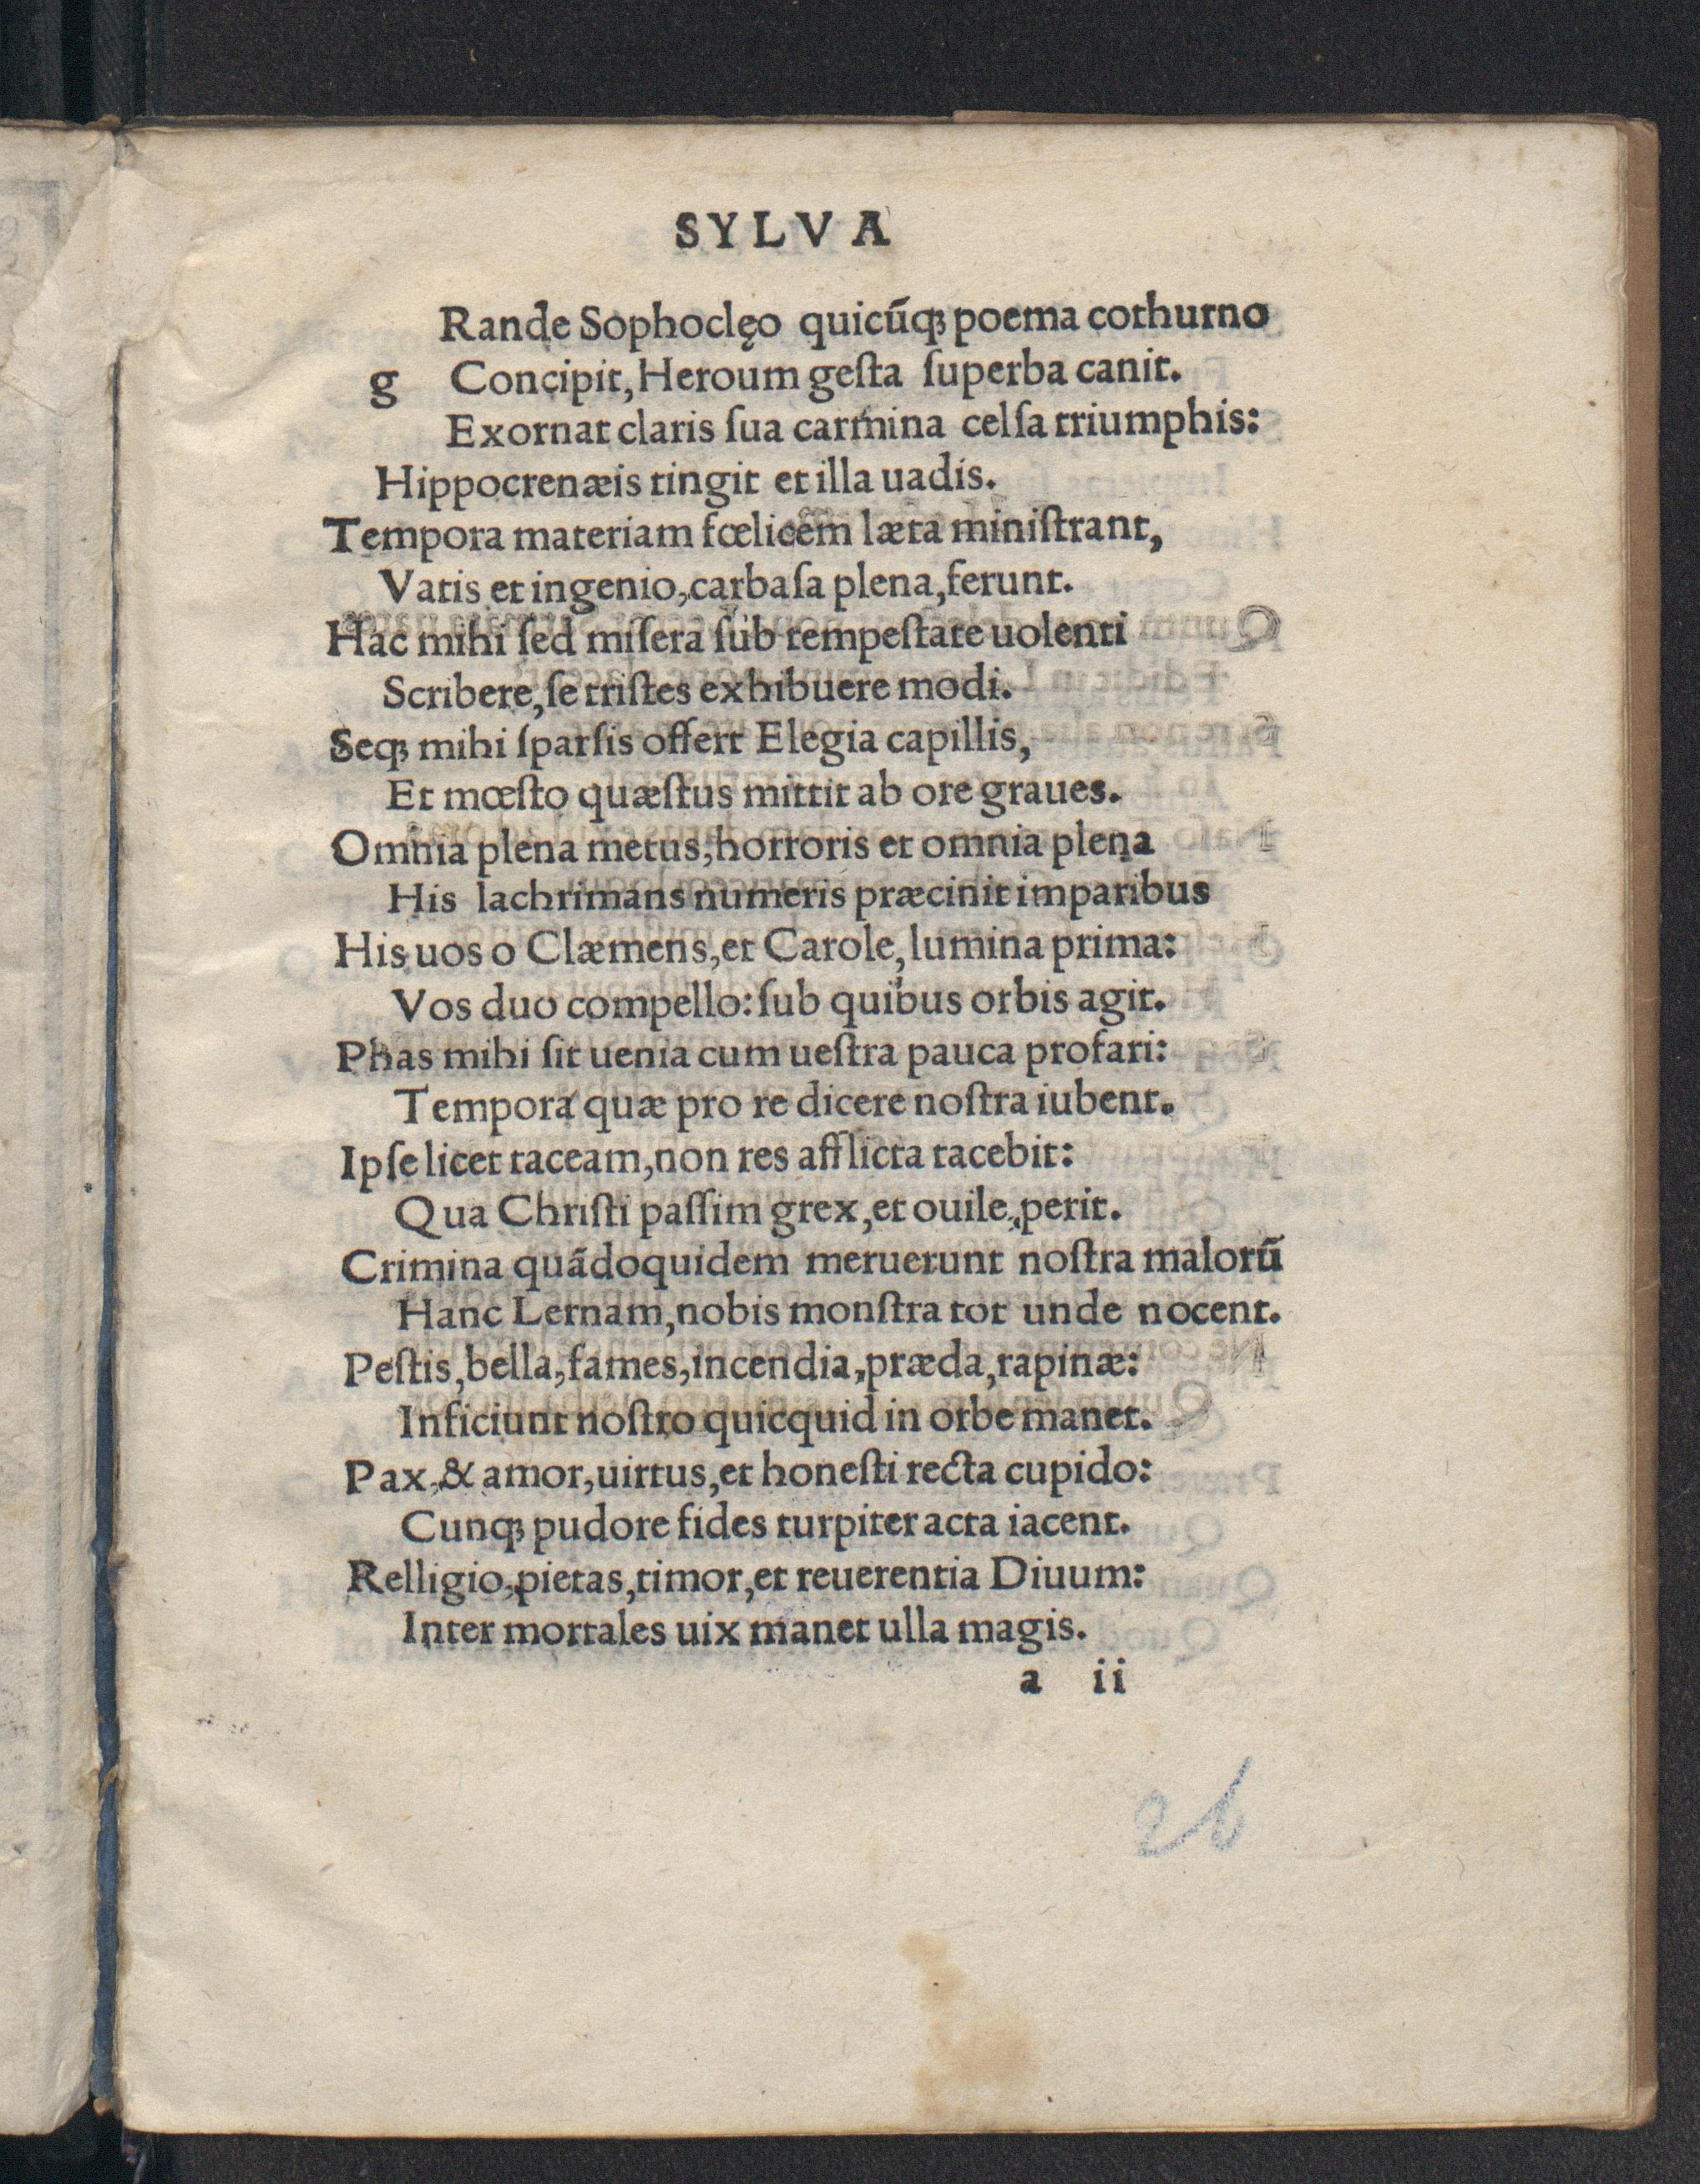 SYLVA
Rande Sophoclęo quicūqꝫ poema cothurno
g Concipit, Heroum geſta ſuperba canit.
Exornat claris ſua carmina celſa triumphis:
Hippocrenæis tingit et illa uadis.
Tempora materiam fœlicem læta miniſtrant,
Vatis et ingenio, carbaſa plena, ferunt.
Hac mihi ſed miſera ſub tempeſtate uolenti
Scribere, ſe triſtes exhibuere modi.
Seqꝫ mihi ſparſis offert Elegia capillis,
Et mœſto quæſtus mittit ab ore graues.
Omnia plena metus, horroris et omnia plena
His lachrimans numeris præcinit imparibus
His uos o Clæmens, et Carole, lumina prima:
Vos duo compello: ſub quibus orbis agit.
Phas mihi ſit uenia cum ueſtra pauca profari:
Tempora quæ pro re dicere noſtra iubent.
Ipſe licet taceam, non res afflicta tacebit:
Qua Chriſti paſſim grex, et ouile, perit.
Crimina quādoquidem meruerunt noſtra malorū
Hanc Lernam, nobis monſtra tot unde nocent.
Peſtis, bella, fames, incendia, præda, rapinæ:
Inficiunt noſtro quicquid in orbe manet.
Pax, & amor, uirtus, et honeſti recta cupido:
Cunqꝫ pudore fides turpiter acta iacent.
Relligio, pietas, timor, et reuerentia Diuum:
Inter mortales uix manet ulla magis.
a ii